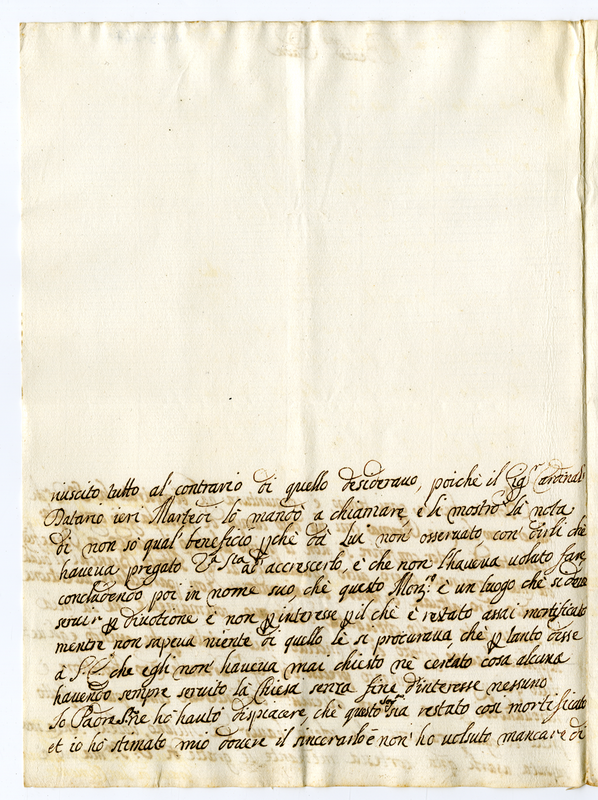 riuscito tutto al' contrario di quello desideravo, poiche il Sig.r Cardinal
Datario ieri Martedi lo mandò a chiamare, e li mostrò la nota
di non sò qual' beneficio pche da lui non osservato con' dirli che
haveva pregato V.ra S.ta ad accrescerlo, e che non l'haveva voluto fare
concludendo poi in nome suo, che questo Mon.ro è un luogo che si deve
servir p divotione e non p interesse p il che è restato assai mortificato
mentre non sapeva niente di quello le si procurava, che p tanto disse
à S. E. che egli non' haveva mai chiesto ne cercato cosa alcuna
havendo sempre servito la Chiesa senza fine d'interesse nessuno
Io Padre S.re hò hauto dispiacere, che questo Sog.to sia restato così mortificato
et io hò stimato mio dovere il sincerarlo e non' hò volsuto mancare di